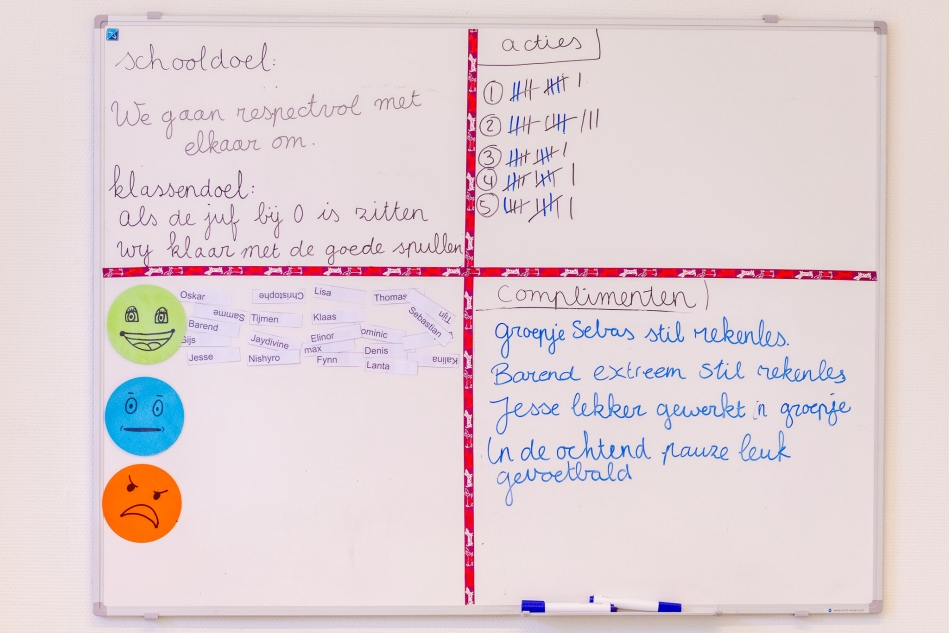 schooldoel:
We gaan respectvol met
elkaar om.
klassendoel:
als de juf bij 0 is zitten
wij klaar met de goede spullen
acties
1 卌 卌 |
2 卌 卌 |||
3 卌 卌 |
4 卌 卌 |
5 卌 卌 |
Oskar Christophe Lisa Thomas Tijn
Samme Tijmen Klaas Sebastian
Barend Elinor ominic
Gijs Jaydivine max Denis Kalina
Jesse Nishyro Fynn Lanta
Complimenten
groepje Sebas stil rekenles.
Barend extreem stil rekenles
Jesse lekker gewerkt in groepje
In de ochtend pauze leuk
gevoetbald